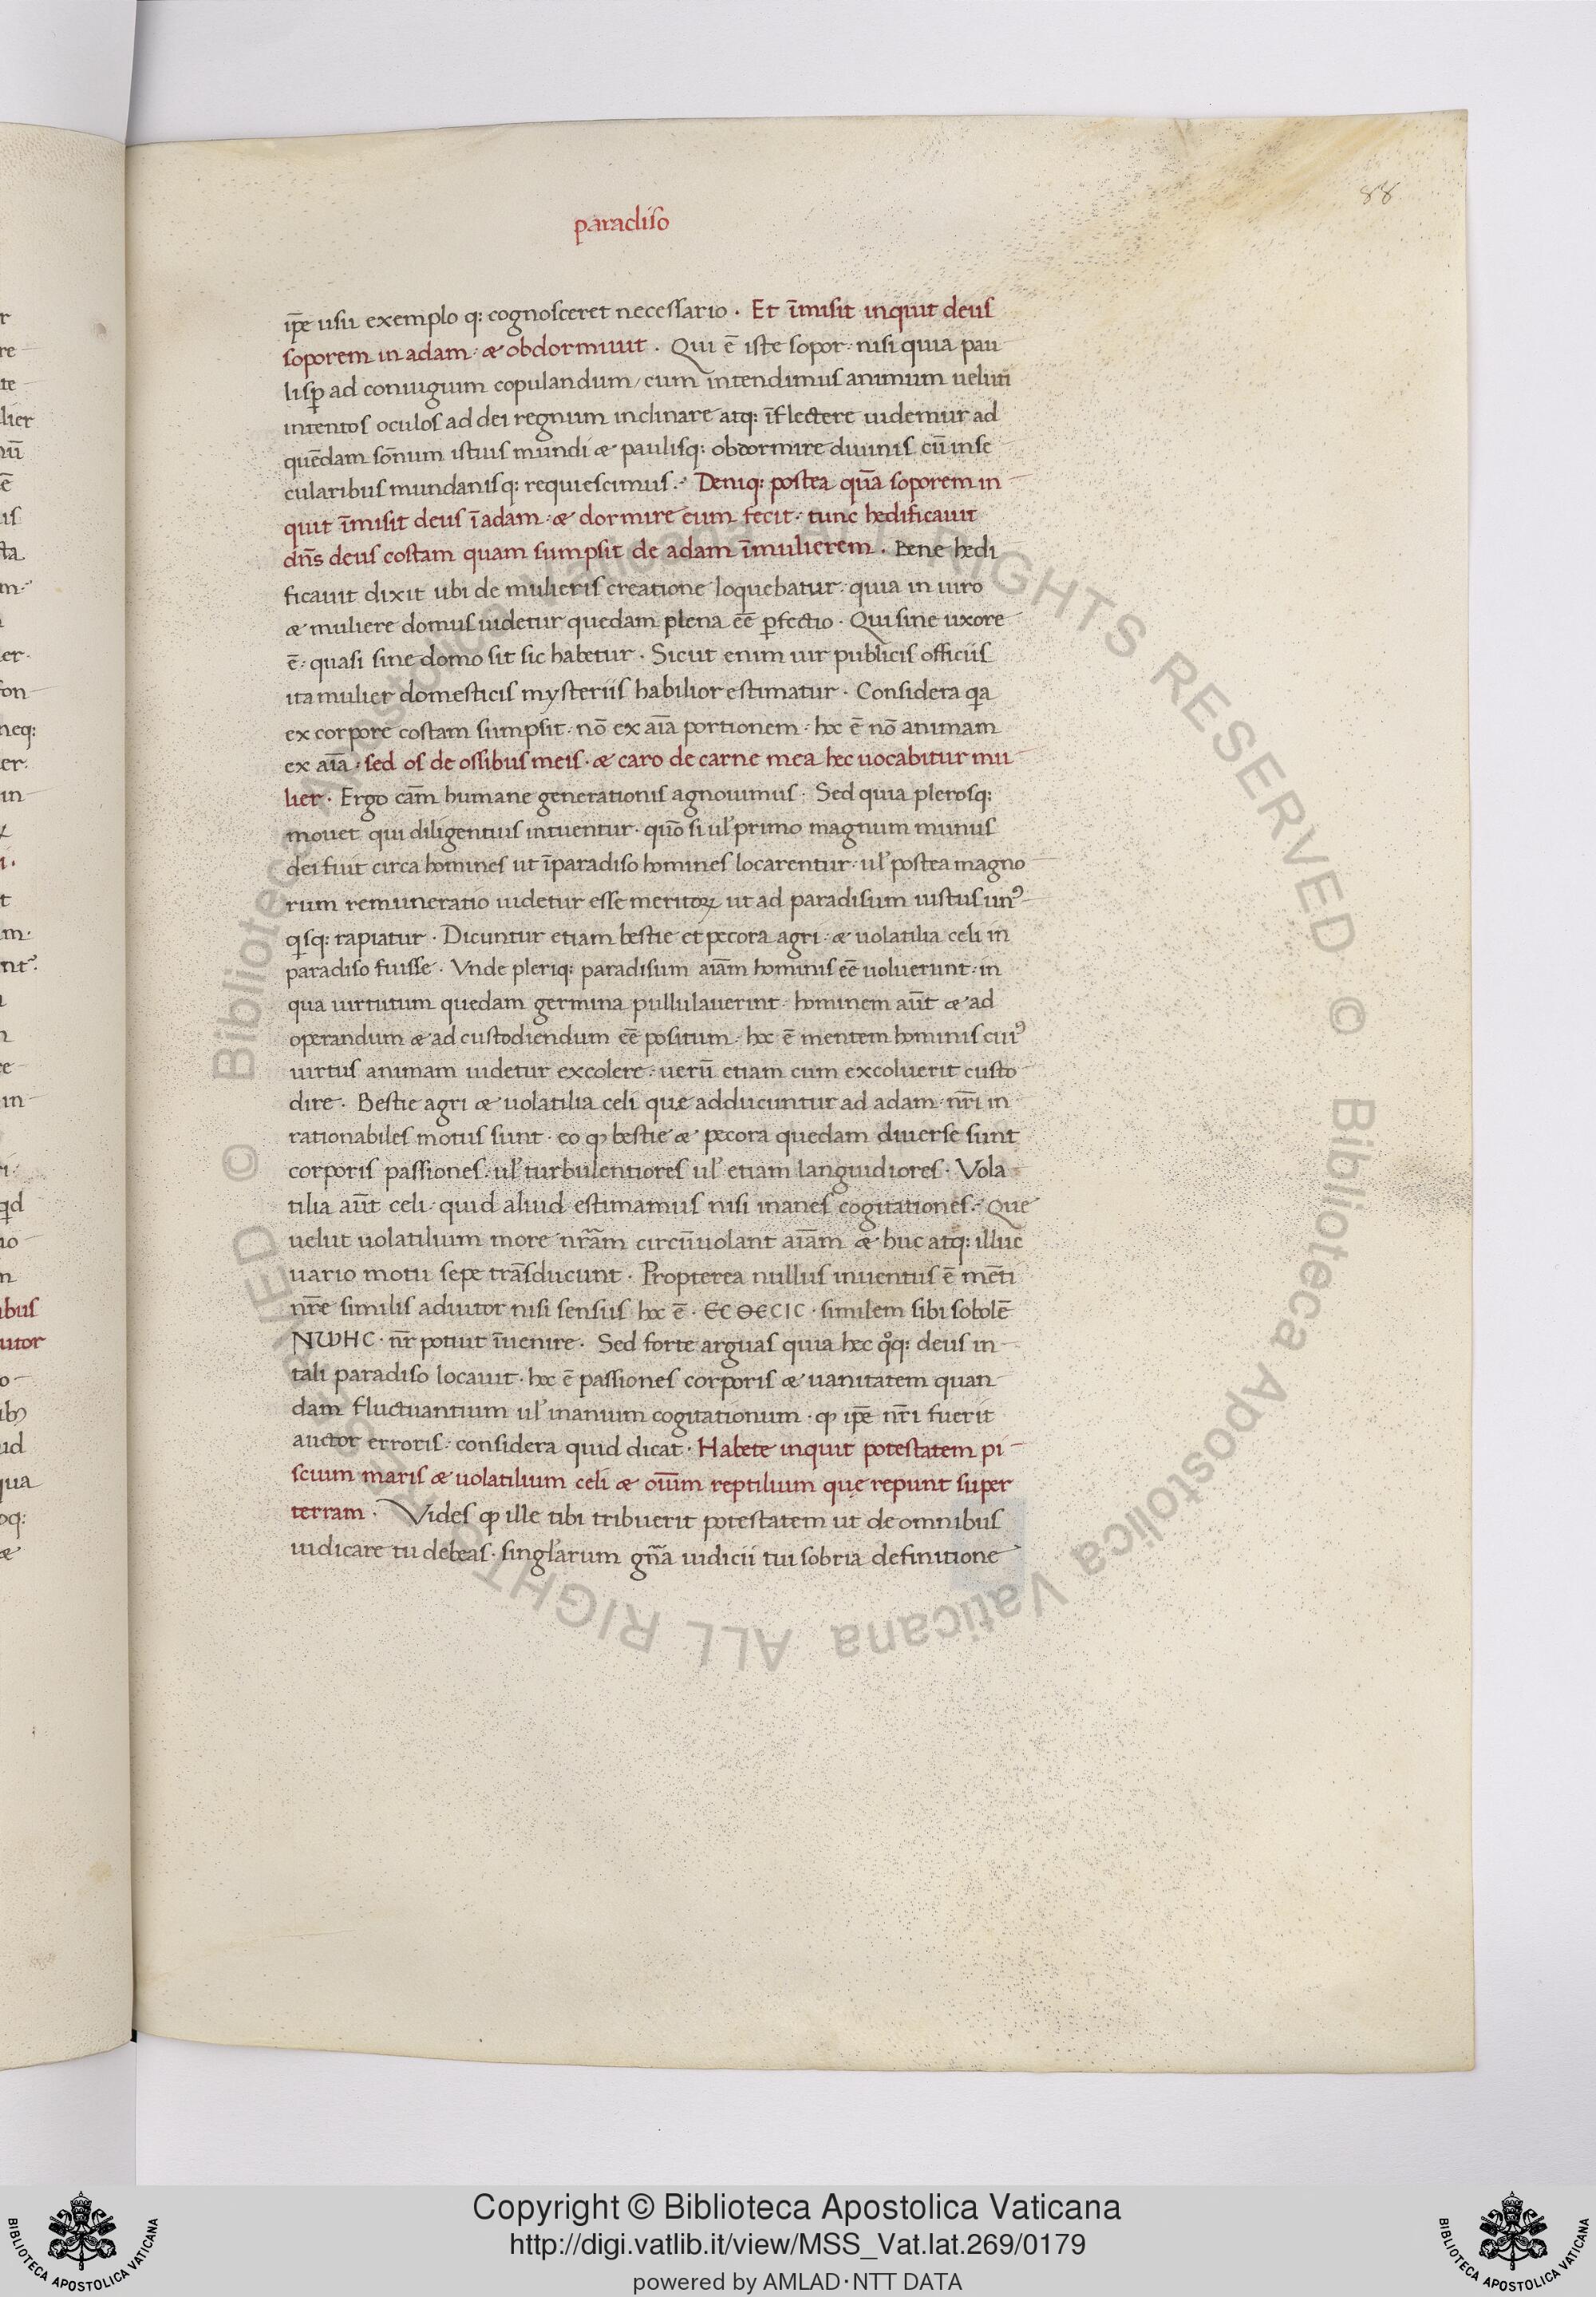 paradiso
88
ip̄e usu exemplo q: cognosceret necessario · Et īmisit inquit deus
soporem in adam · & obdormiuit · Qui ē iste sopor · nisi quia pau
lisꝑ ad coniugium copulandum / cum intendimus animum ueluti
intentos oculos ad dei regnum inclinare atq: īflectere uidemur ad
quēdam sōnum istius mundi & paulisq: obdormire diuinis cū in se
cularibus mundanisq: requiescimus · Deniq: postea quā soporem in
quit īmisit deus ī adam · & dormire eum fecit · tunc hedificauit
dn̄s deus costam quam sumpsit de adam ī mulierem · Bene hedi
ficauit dixit ubi de mulieris creatione loquebatur · quia in uiro
& muliere domus uidetur quedam plena eē ꝑfectio · Qui sine uxore
ē · quasi sine domo sit sic habetur · Sicut enim uir publicis officiis
ita mulier domesticis mysteriis habilior estimatur · Considera qa
ex corpore costam sumpsit · nō ex aīa portionem · hoc ē nō animam
ex aīa · sed os de ossibus meis · & caro de carne mea hec uocabitur mu
lier · Ergo cām humane generationis agnouimus · Sed quia plerosq:
mouet qui diligentius intuentur · quō si ul' primo magnum munus
dei fuit circa homines ut ī paradiso homines locarentur · ul' postea magno
rum remuneratio uidetur esse meritoꝝ ut ad paradisum iustus unꝰ
qisq: rapiatur · Dicuntur etiam bestie et pecora agri · & uolatilia celi in
paradiso fuisse · Vnde pleriq: paradisum aiām hominis eē uoluerunt · in
qua uirtutum quedam germina pullulauerint · hominem aūt & ad
operandum & ad custodiendum eē positum · hoc ē mentem hominis cuiꝰ
uirtus animam uidetur excolere · uerū etiam cum excoluerit custo
dire · Bestie agri & uolatilia celi que adducuntur ad adam · nr̄i in
rationabiles motus sunt · eo ꝙ bestie & pecora quedam diuerse sunt
corporis passiones · ul' turbulentiores ul' etiam languidiores · Vola
tilia aūt celi · quid aliud estimamus nisi inanes cogitationes · Que
uelut uolatilium more nr̄am circūuolant aiām & huc atq: illuc
uario motu sepe trāsducunt · Propterea nullus inuentus ē mēti
nr̄e similis adiutor nisi sensus hoc ē · ЄCΘЄCIC · similem sibi sobolē
NWHC · nr̄ potuit īuenire · Sed forte arguas quia hec qͦq: deus in
tali paradiso locauit · hoc ē passiones corporis & uanitatem quan
dam fluctuantium ul' inanium cogitationum · ꝙ ip̄e nr̄i fuerit
auctor erroris · considera quid dicat · Habete inquit potestatem pi
scium maris & uolatilium celi & oīum reptilium quę repunt super
terram · Vides ꝙ ille tibi tribuerit potestatem ut de omnibus
iudicare tu debeas · singl'arum gn̄a iudicii tui sobria definitione
© Biblioteca Apostolica Vaticana ALL RIGHTS RESERVED © Biblioteca Apostolica Vaticana ALL RIGHTS RESERVED
Copyright © Biblioteca Apostolica Vaticana
http://digi.vatlib.it/view/MSS_Vat.lat.269/0179
powered by AMLAD·NTT DATA
BIBLIOTECA APOSTOLICA VATICANA
BIBLIOTECA APOSTOLICA VATICANA